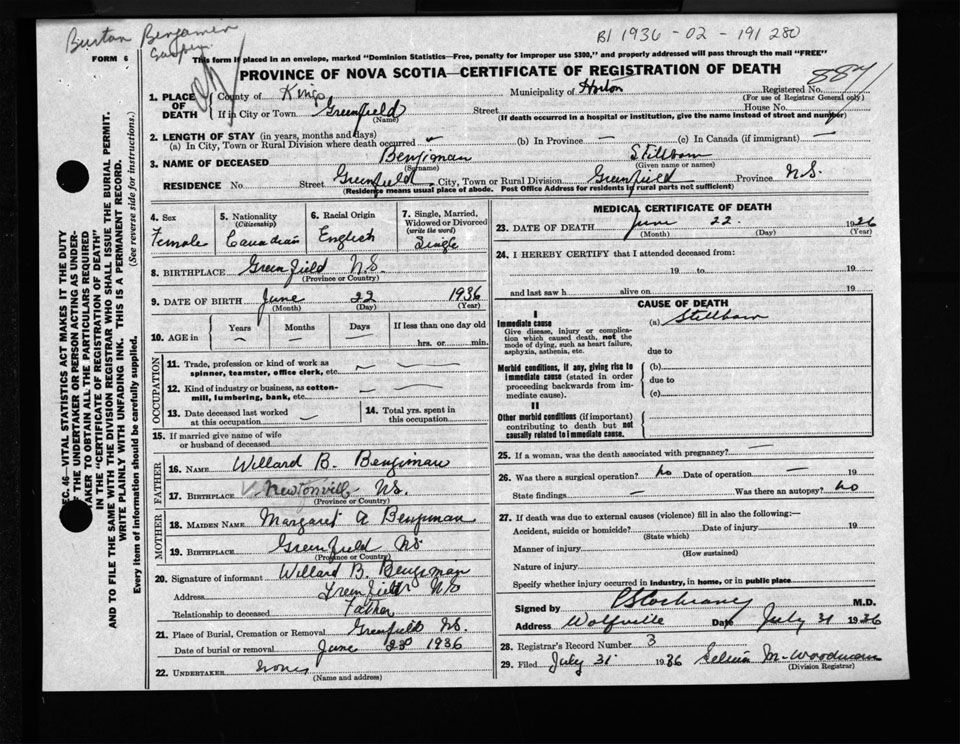 Burton Benjamin
Gaspere
B1 1936 - 02 - 191280
887
FORM 6
This form if placed in an envelope, marked "Dominion Statistics—Free, penalty for improper use $300," and properly addressed will pass through the mail "FREE"
PROVINCE OF NOVA SCOTIA—CERTIFICATE OF REGISTRATION OF DEATH
SEC. 46—VITAL STATISTICS ACT MAKES IT THE DUTY
OF THE UNDERTAKER OR PERSON ACTING AS UNDER-
TAKER TO OBTAIN ALL THE PARTICULARS REQUIRED
IN THE "CERTIFICATE OF REGISTRATION OF DEATH"
AND TO FILE THE SAME WITH THE DIVISION REGISTRAR WHO SHALL ISSUE THE BURIAL PERMIT.
WRITE PLAINLY WITH UNFADING INK. THIS IS A PERMANENT RECORD.
Every item of information should be carefully supplied. (See reverse side for instructions.)
1. PLACE OF DEATH County of Kings Municipality of Horton Registered No.
(For use of Registrar General only)
If in City or Town Greenfield Street House No.
(Name) (If death occurred in a hospital or institution, give the name instead of street and number)
2. LENGTH OF STAY (in years, months and days)
(a) In City, Town or Rural Division where death occurred — (b) In Province — (c) In Canada (if immigrant) —
3. NAME OF DECEASED Benjiman Stillborn
(Surname) (Given name or names)
RESIDENCE No. Street Greenfield City, Town or Rural Division Greenfield Province N.S.
(Residence means usual place of abode. Post Office Address for residents in rural parts not sufficient)
4. Sex Female
5. Nationality (Citizenship) Canadian
6. Racial Origin English
7. Single, Married, Widowed or Divorced (write the word) Single
8. BIRTHPLACE Greenfield N.S.
(Province or Country)
9. DATE OF BIRTH June 22 1936
(Month) (Day) (Year)
10. AGE in Years — Months — Days — If less than one day old
hrs. or min.
OCCUPATION
11. Trade, profession or kind of work as spinner, teamster, office clerk, etc. —
12. Kind of industry or business, as cotton-mill, lumbering, bank, etc. —
13. Date deceased last worked at this occupation —
14. Total yrs. spent in this occupation
15. If married give name of wife or husband of deceased
FATHER
16. NAME Willard B. Benjiman
17. BIRTHPLACE Newtonville N.S.
(Province or Country)
MOTHER
18. MAIDEN NAME Margaret A Benjiman
19. BIRTHPLACE Greenfield NS
(Province or Country)
20. Signature of informant Willard B. Benjiman
Address Greenfield NS
Relationship to deceased Father
21. Place of Burial, Cremation or Removal Greenfield N.S.
Date of burial or removal June 23 1936
22. UNDERTAKER none
(Name and address)
MEDICAL CERTIFICATE OF DEATH
23. DATE OF DEATH June 22 1936
(Month) (Day) (Year)
24. I HEREBY CERTIFY that I attended deceased from:
19 to 19
and last saw h alive on 19
CAUSE OF DEATH
I
Immediate cause (a) Stillborn
Give disease, injury or complication which caused death, not the mode of dying, such as heart failure, asphyxia, asthenia, etc. due to
Morbid conditions, if any, giving rise to immediate cause (stated in order proceeding backwards from immediate cause). (b)
due to
(c)
II
Other morbid conditions (if important) contributing to death but not causally related to immediate cause.
25. If a woman, was the death associated with pregnancy? —
26. Was there a surgical operation? no Date of operation — 19
State findings — Was there an autopsy? no
27. If death was due to external causes (violence) fill in also the following:—
Accident, suicide or homicide? Date of injury 19
(State which)
Manner of injury
(How sustained)
Nature of injury
Specify whether injury occurred in industry, in home, or in public place
Signed by Cochrane M.D.
Address Wolfville Date July 31 1936
28. Registrar's Record Number 3
29. Filed July 31 1936 M. Woodman
(Division Registrar)